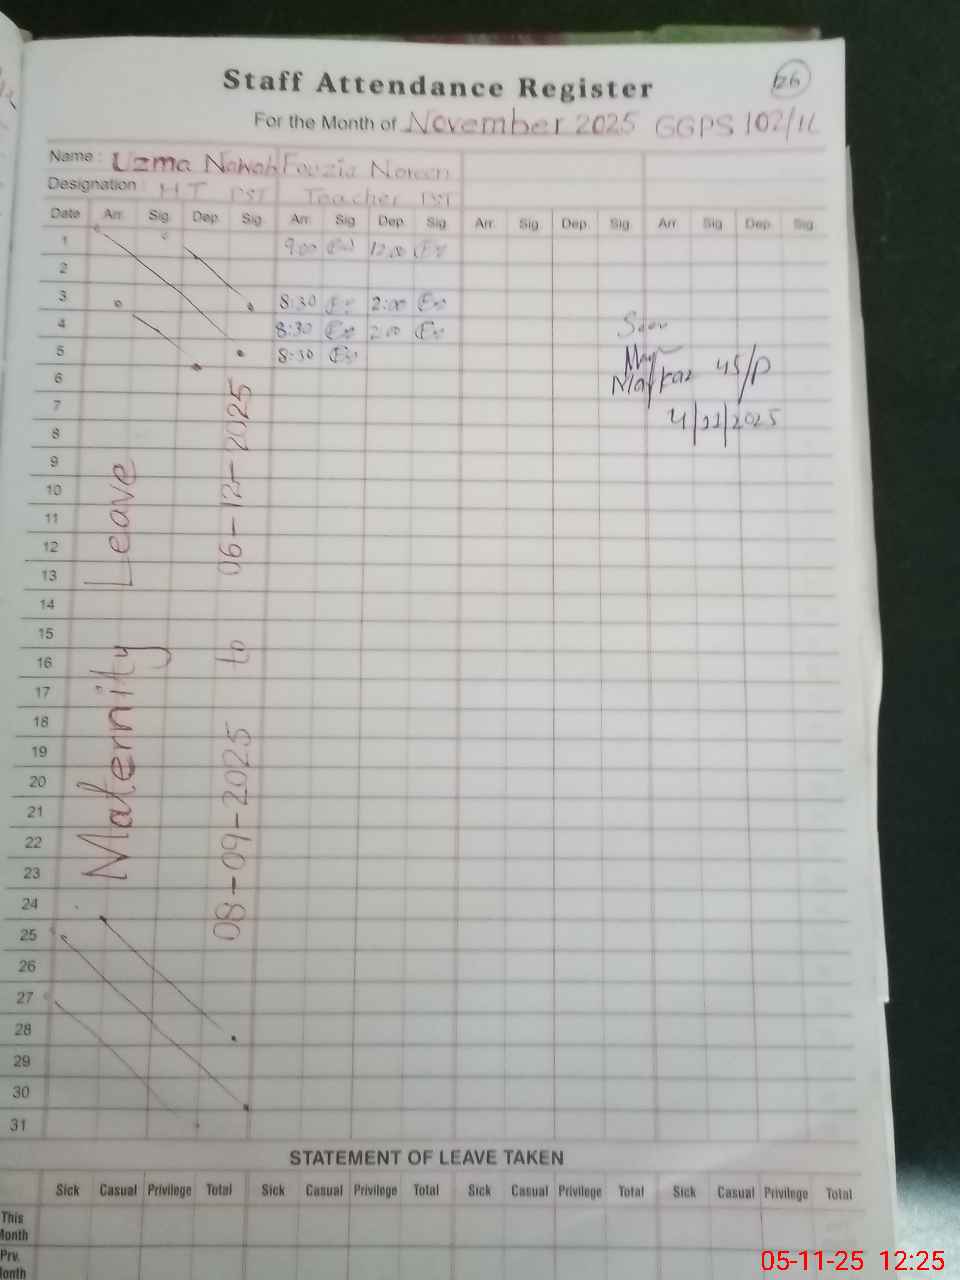 26
Staff Attendance Register
For the Month of November 2025 GGPS 102/1L
Name : Uzma Nawab Fouzia Noreen
Designation : HT PST Teacher PST
Date Arr. Sig. Dep. Sig. Arr. Sig. Dep. Sig. Arr. Sig. Dep. Sig. Arr. Sig. Dep. Sig.
1 9:00 12:00
2
3 8:30 2:00
4 8:30 2:00
5 8:30
6 Markaz 45/P
7 4/11/2025
8
9
10
11
12
13
14
15
16
17
18
19
20
21
22
23
24
25
26
27
28
29
30
31
Maternity Leave
08-09-2025 to 06-12-2025
STATEMENT OF LEAVE TAKEN
Sick Casual Privilege Total Sick Casual Privilege Total Sick Casual Privilege Total Sick Casual Privilege Total
This Month
Prv. Month
05-11-25 12:25